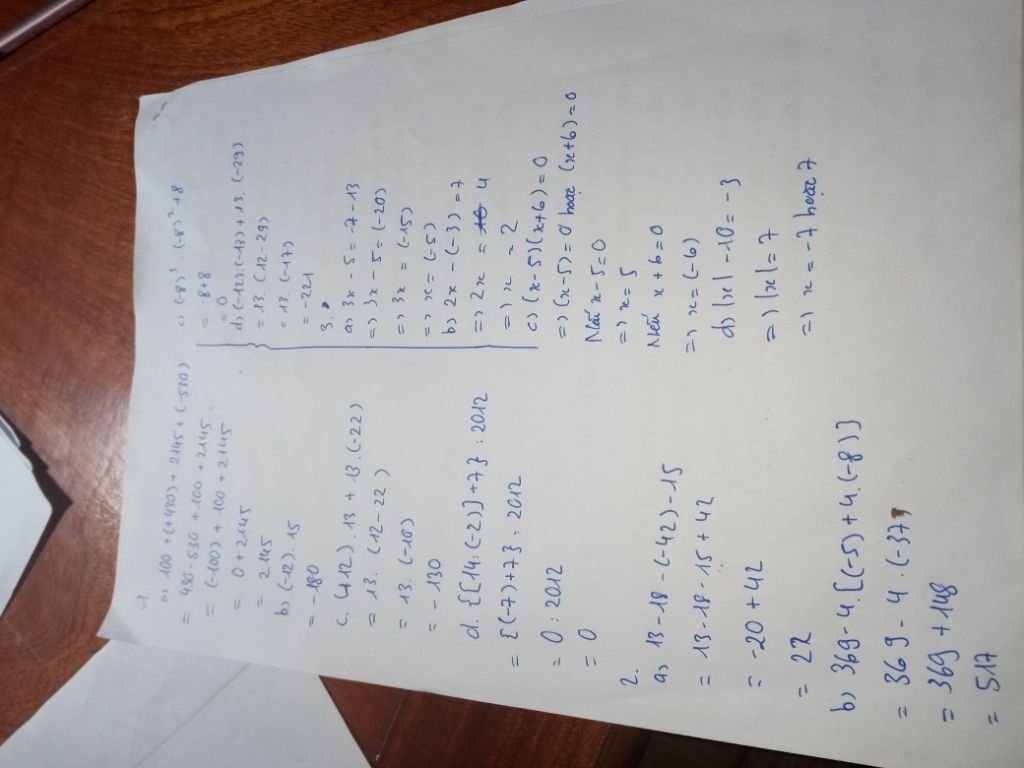 1
a) 100 + (+430) + 2145 + (-530)
= 430 - 530 + 100 + 2145
= (-100) + 100 + 2145
= 0 + 2145
= 2145
b) (-12) . 15
= -180
c. (+12) . 13 + 13 . (-22)
= 13 . (12 - 22)
= 13 . (-10)
= - 130
d. {[14 : (-2)] + 7} : 2012
= {(-7) + 7} : 2012
= 0 : 2012
= 0
2.
a) 13 - 18 - (-42) - 15
= 13 - 18 - 15 + 42
= -20 + 42
= 22
b) 369 - 4 . [(-5) + 4 . (-8)]
= 369 - 4 . (-37)
= 369 + 148
= 517
c) (-8)³ : (-8)² + 8
= -8 + 8
= 0
d) (-12) . (-13) + 13 . (-29)
= 13 . (12 - 29)
= 13 . (-17)
= -221
3.
a) 3x - 5 = -7 - 13
=> 3x - 5 = (-20)
=> 3x = (-15)
=> x = (-5)
b) 2x - (-3) = 7
=> 2x = 4
=> x = 2
c) (x - 5) (x + 6) = 0
=> (x - 5) = 0 hoặc (x + 6) = 0
Nếu x - 5 = 0
=> x = 5
Nếu x + 6 = 0
=> x = (-6)
d) |x| - 10 = - 3
=> |x| = 7
=> x = -7 hoặc 7